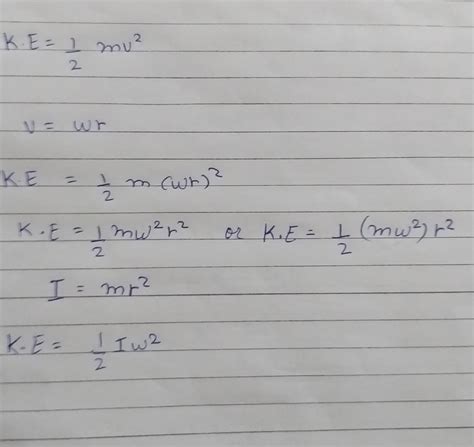 K.E = 1/2 mv²
v = wr
K.E = 1/2 m (wr)²
K.E = 1/2 mw²r² or K.E = 1/2 (mw²) r²
I = mr²
K.E = 1/2 I w²